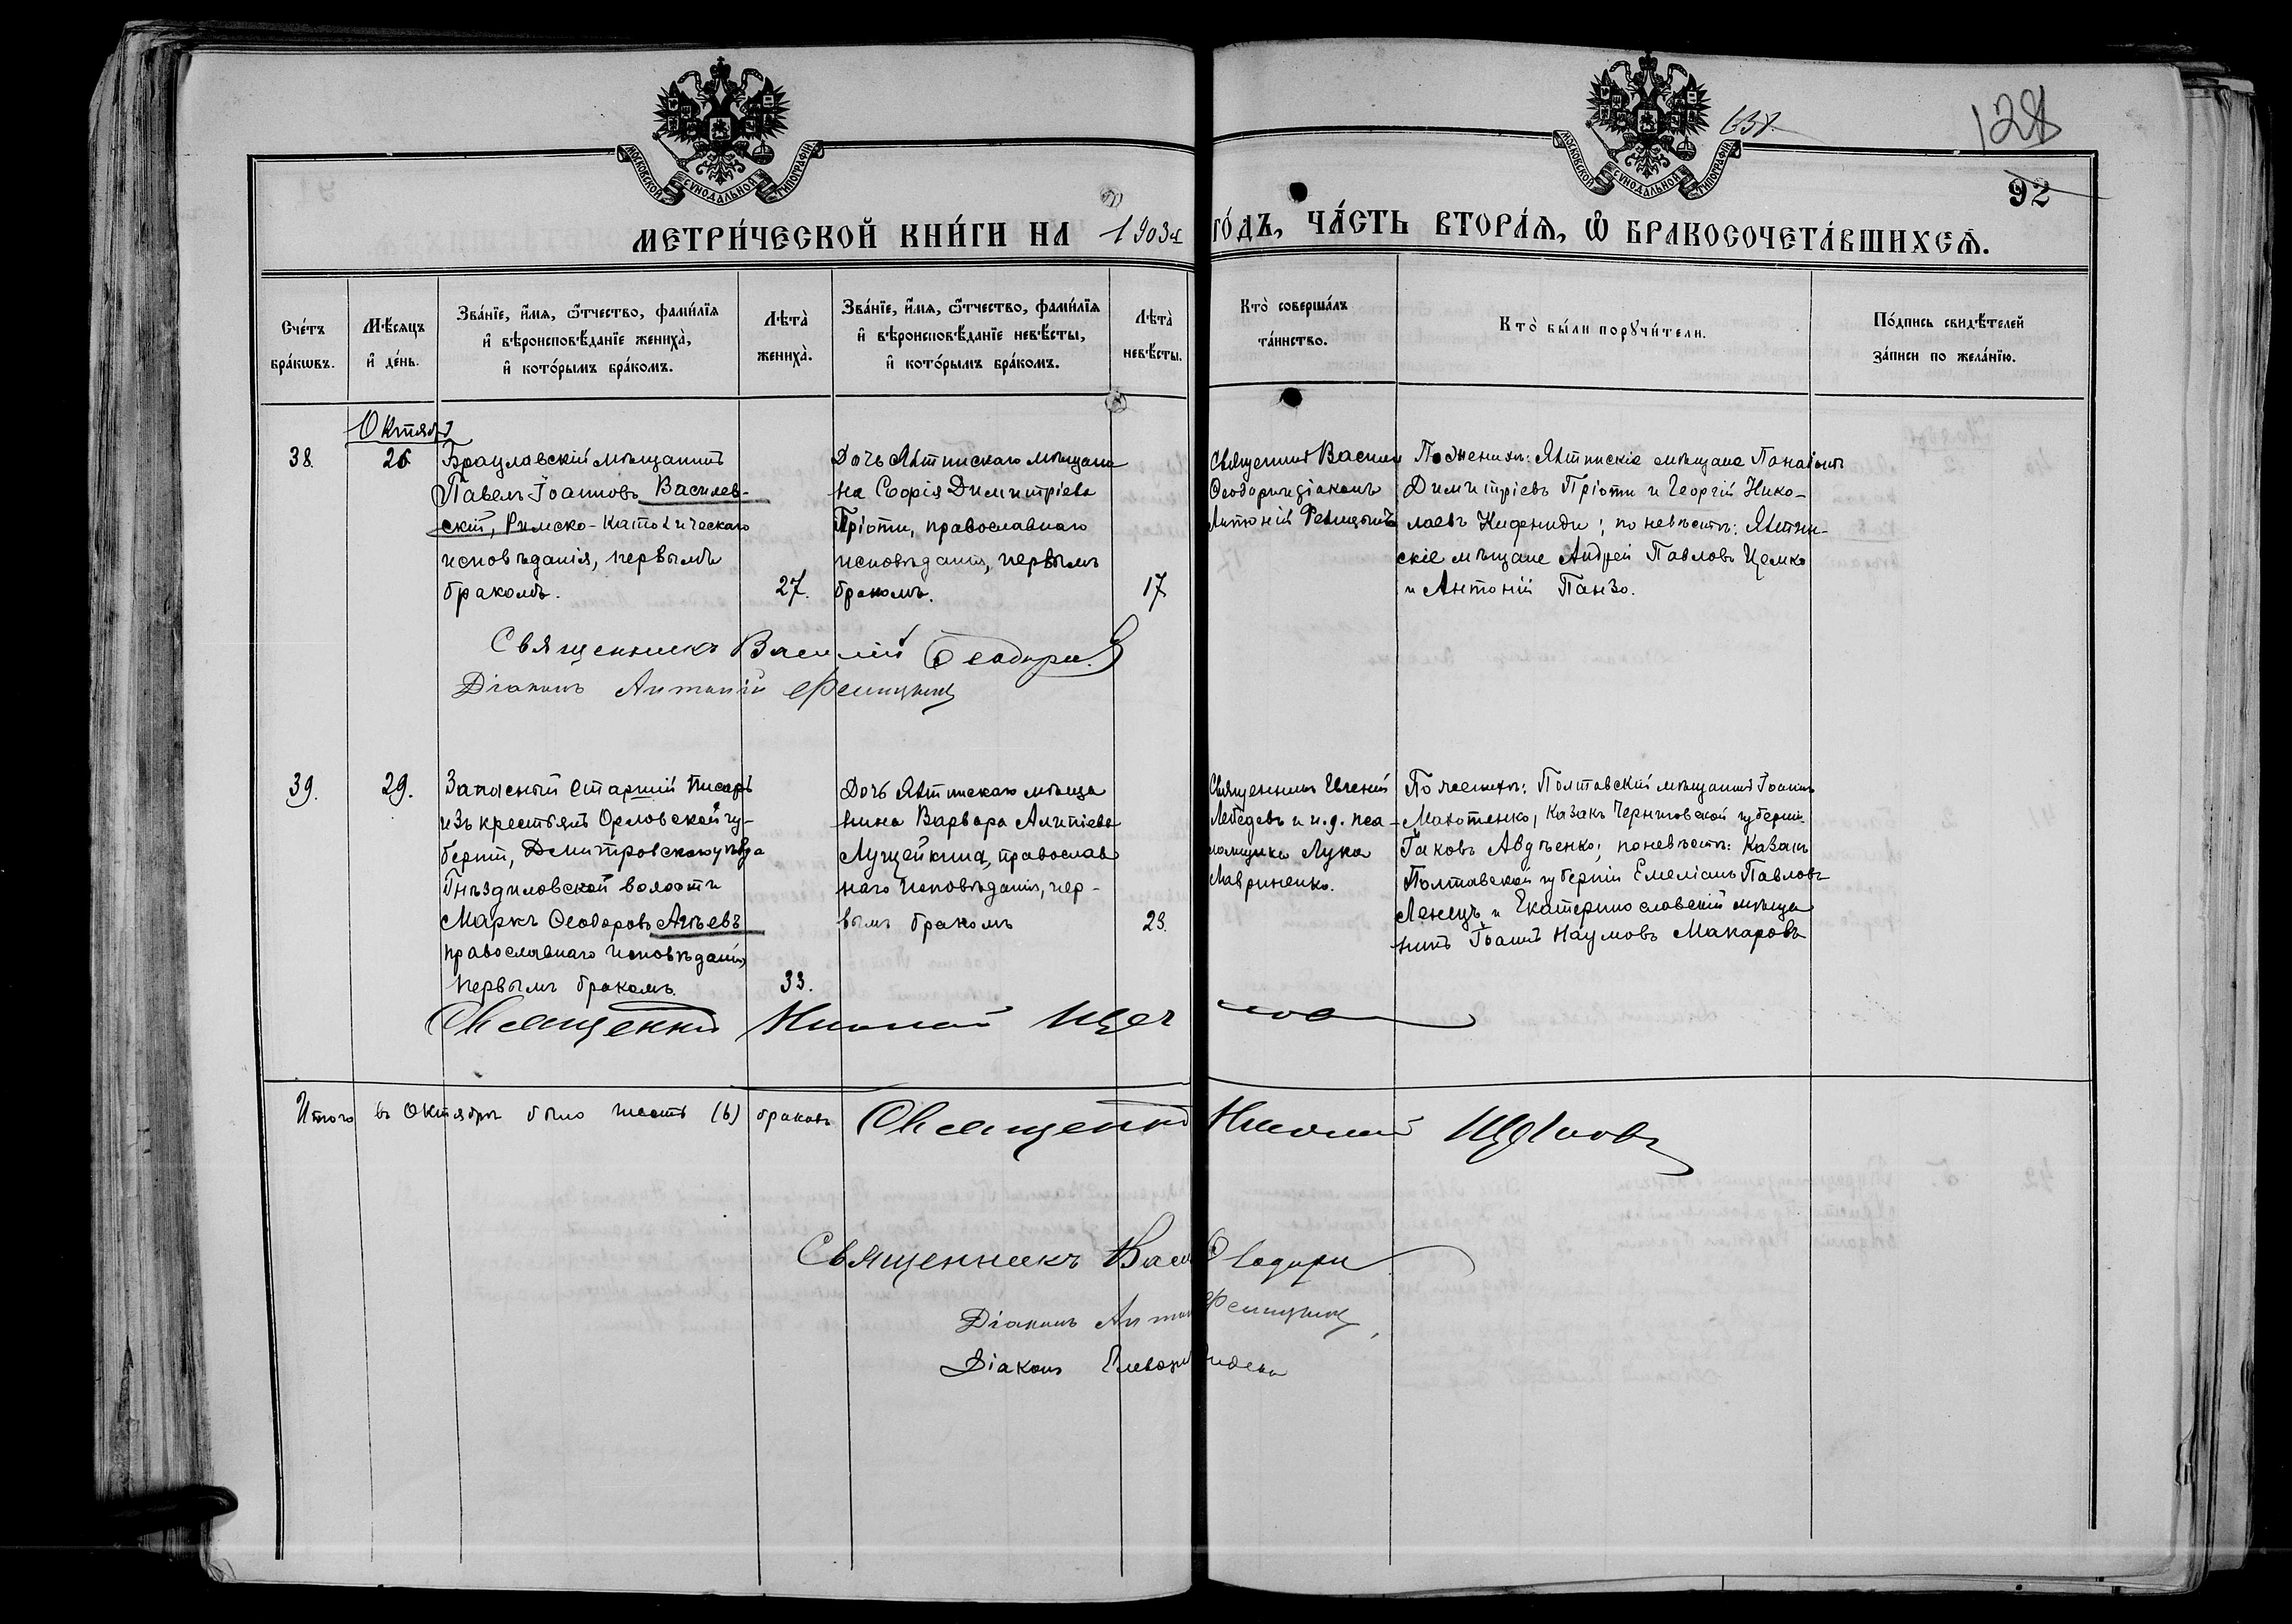 МОСКОВСКОЙ СѴНОДАЛЬНОЙ ТИПОГРАФІИ
МОСКОВСКОЙ СѴНОДАЛЬНОЙ ТИПОГРАФІИ
128
92
МЕТРИ́ЧЕСКОЙ КНИ́ГИ НА 1903й ГО́ДЪ, ЧА́СТЬ ВТОРА́Я, Ѡ БРАКОСОЧЕТА́ВШИХСѦ.
Сче́тъ бра́кѡвъ.
Мѣ́сяцъ и҆ де́нь.
Зва́нїе, и҆́мя, ѻ҆́тчество, фами́лїя
и҆ вѣроисповѣ́данїе жениха̀,
и҆ кото́рымъ бра́комъ.
Лѣта̀ жениха̀.
Зва́нїе, и҆́мя, ѻ҆́тчество, фами́лїя
и҆ вѣроисповѣ́данїе невѣ́сты,
и҆ кото́рымъ бра́комъ.
Лѣта̀ невѣ́сты.
Кто̀ соверша́лъ
та́инство.
Кто̀ бы́ли порꙋчи́тели.
По́дпись свидѣ́телей
за́писи по жела́нїю.
Октябр
38.
26
Брацлавскій мѣщанинъ
Павелъ Іоанновъ Василев-
скій, Римско-Католическаго
исповѣданія, первымъ
бракомъ.
27.
Дочь Ялтинскаго мѣщани
на Софія Димитріева
Пріоти, православнаго
исповѣданія, первымъ
бракомъ.
17
Священникъ Василій
Ѳеодори и діаконъ
Антоній
По женихѣ: Ялтинскіе мѣщане Панаіотъ
Димитріевъ Пріоти и Георгій Нико-
лаевъ Кифениди; по невѣстѣ: Ялтин-
скіе мѣщане Андрей Павловъ Цемко
и Антоній Панзо.
Священникъ Василій Ѳеодори
Діаконъ Антоній
39.
29.
Запасный старшій писарь
изъ крестьянъ Орловской гу-
берніи, Дмитровскаго уѣзда
Гнѣздиловской волости
Маркъ Ѳеодоровъ Агѣевъ
православнаго исповѣданія,
первымъ бракомъ.
33.
Дочь Ялтинскаго мѣща
нина Варвара Алипіева
православ
наго исповѣданія, пер-
вымъ бракомъ
23.
Священникъ Евгеній
Лебедевъ и и.д. пса-
ломщика Лука
Лавриненко.
По женихѣ: Полтавскій мѣщанинъ Іоаннъ
Махотенко, казакъ Черниговской губерніи
Іаковъ Авдѣенко; по невѣстѣ: Казакъ
Полтавской губерніи Емеліанъ Павловъ
Ленецъ и Екатеринославскій мѣща
нинъ Іоаннъ Наумовъ Макаровъ
Священникъ Николай
Итого въ Октябрѣ было шесть (6) браковъ
Священникъ Николай
Священникъ Васи Ѳеодори
Діаконъ Антон
Діаконъ